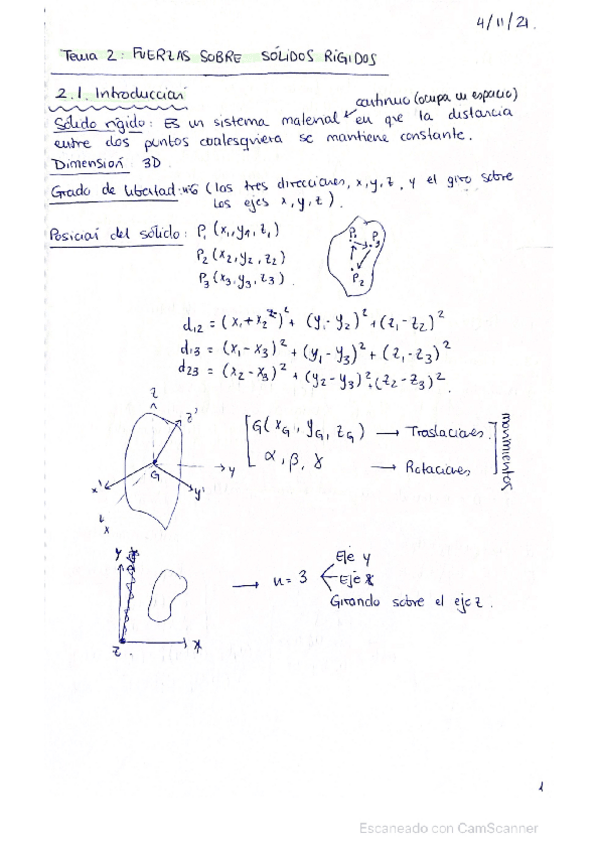 4/11/21.
Tema 2: FUERZAS SOBRE SÓLIDOS RÍGIDOS
2.1. Introducción
continuo (ocupa un espacio)
Sólido rígido: Es un sistema material en que la distancia
entre dos puntos cualesquiera se mantiene constante.
Dimensión 3D.
Grado de libertad: n=6 (las tres direcciones, x, y, z, y el giro sobre
los ejes x, y, z).
Posición del sólido: P₁ (x₁, y₁, z₁)
P₂ (x₂, y₂, z₂)
P₃ (x₃, y₃, z₃).
P₁ P₃
P₂
d₁₂ = (x₁+x₂)² + (y₁-y₂)² + (z₁-z₂)²
d₁₃ = (x₁-x₃)² + (y₁-y₃)² + (z₁-z₃)²
d₂₃ = (x₂-x₃)² + (y₂-y₃)² + (z₂-z₃)².
z
z'
G(x_G, y_G, z_G) → Traslaciones.
α, β, γ → Rotaciones
movimientos
G
y
x'
y'
x
y
Eje y
→ n=3 Eje x
Girando sobre el eje z.
z.
x
1
Escaneado con CamScanner